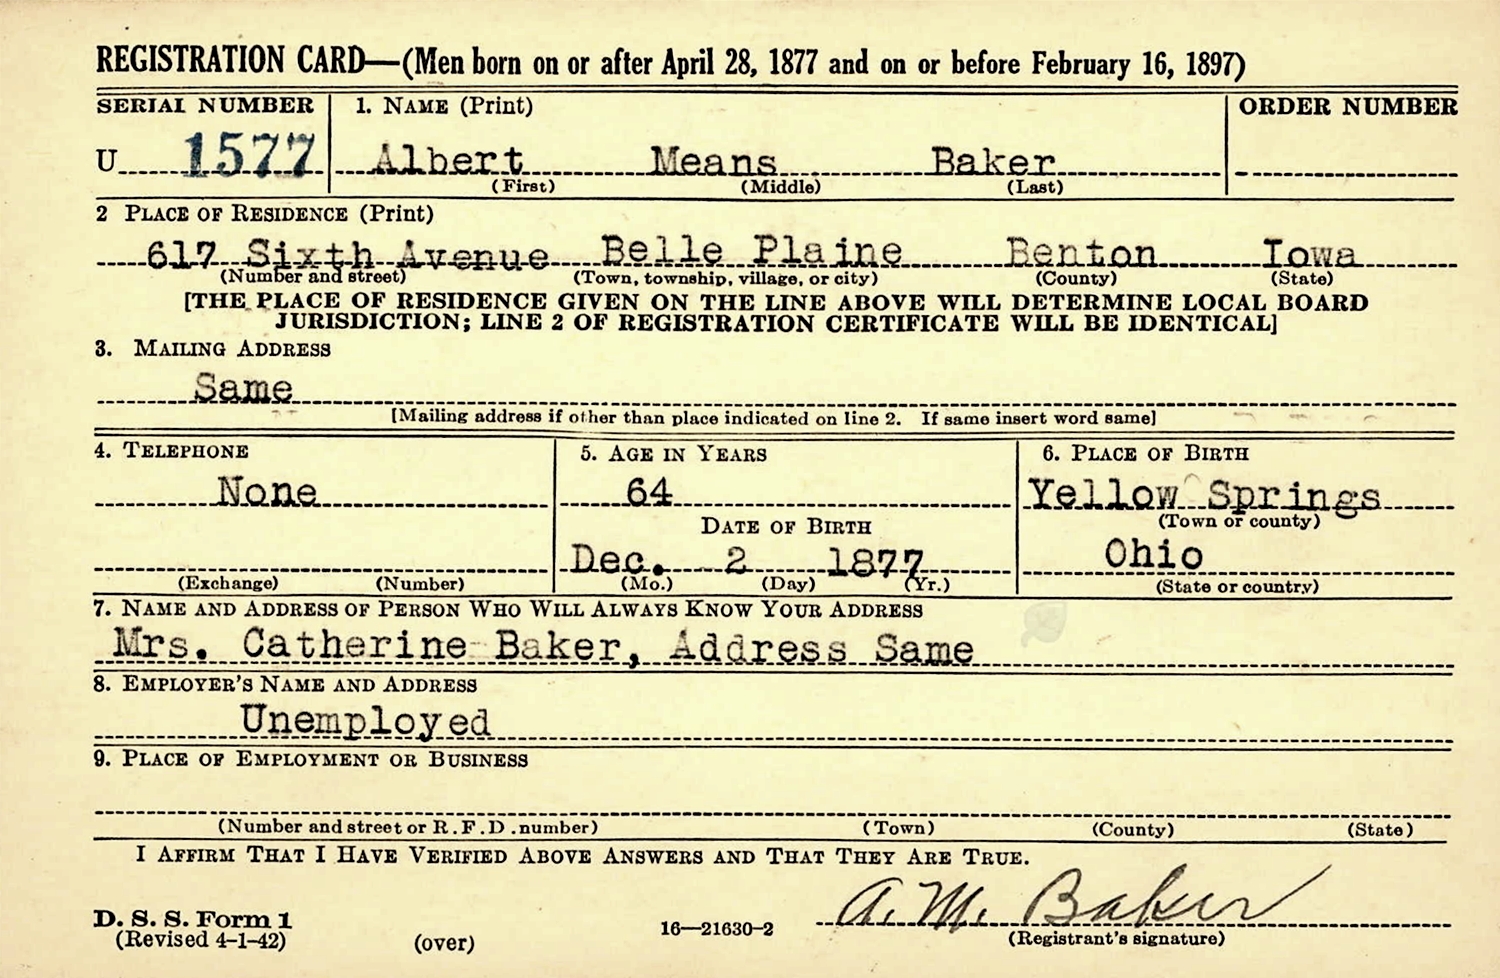 REGISTRATION CARD—(Men born on or after April 28, 1877 and on or before February 16, 1897)
SERIAL NUMBER 1. NAME (Print) ORDER NUMBER
U 1577 Albert Means Baker
(First) (Middle) (Last)
2 PLACE OF RESIDENCE (Print)
617 Sixth Avenue Belle Plaine Benton Iowa
(Number and street) (Town, township, village, or city) (County) (State)
[THE PLACE OF RESIDENCE GIVEN ON THE LINE ABOVE WILL DETERMINE LOCAL BOARD
JURISDICTION; LINE 2 OF REGISTRATION CERTIFICATE WILL BE IDENTICAL]
3. MAILING ADDRESS
Same
[Mailing address if other than place indicated on line 2. If same insert word same]
4. TELEPHONE 5. AGE IN YEARS 6. PLACE OF BIRTH
None 64 Yellow Springs
(Town or county)
DATE OF BIRTH
Dec. 2 1877 Ohio
(Exchange) (Number) (Mo.) (Day) (Yr.) (State or country)
7. NAME AND ADDRESS OF PERSON WHO WILL ALWAYS KNOW YOUR ADDRESS
Mrs. Catherine Baker, Address Same
8. EMPLOYER'S NAME AND ADDRESS
Unemployed
9. PLACE OF EMPLOYMENT OR BUSINESS
(Number and street or R.F.D. number) (Town) (County) (State)
I AFFIRM THAT I HAVE VERIFIED ABOVE ANSWERS AND THAT THEY ARE TRUE.
A. M. Baker
D. S. S. Form 1
(Revised 4-1-42) (over) 16—21630-2 (Registrant's signature)